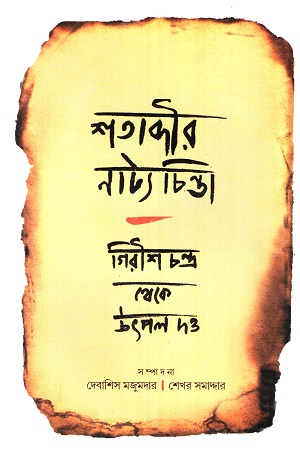 শতাব্দীর
নাট্যচিন্তা
গিরীশ চন্দ্র
থেকে
উৎপল দত্ত
সম্পাদনা
দেবাশিস মজুমদার | শেখর সমাদ্দার